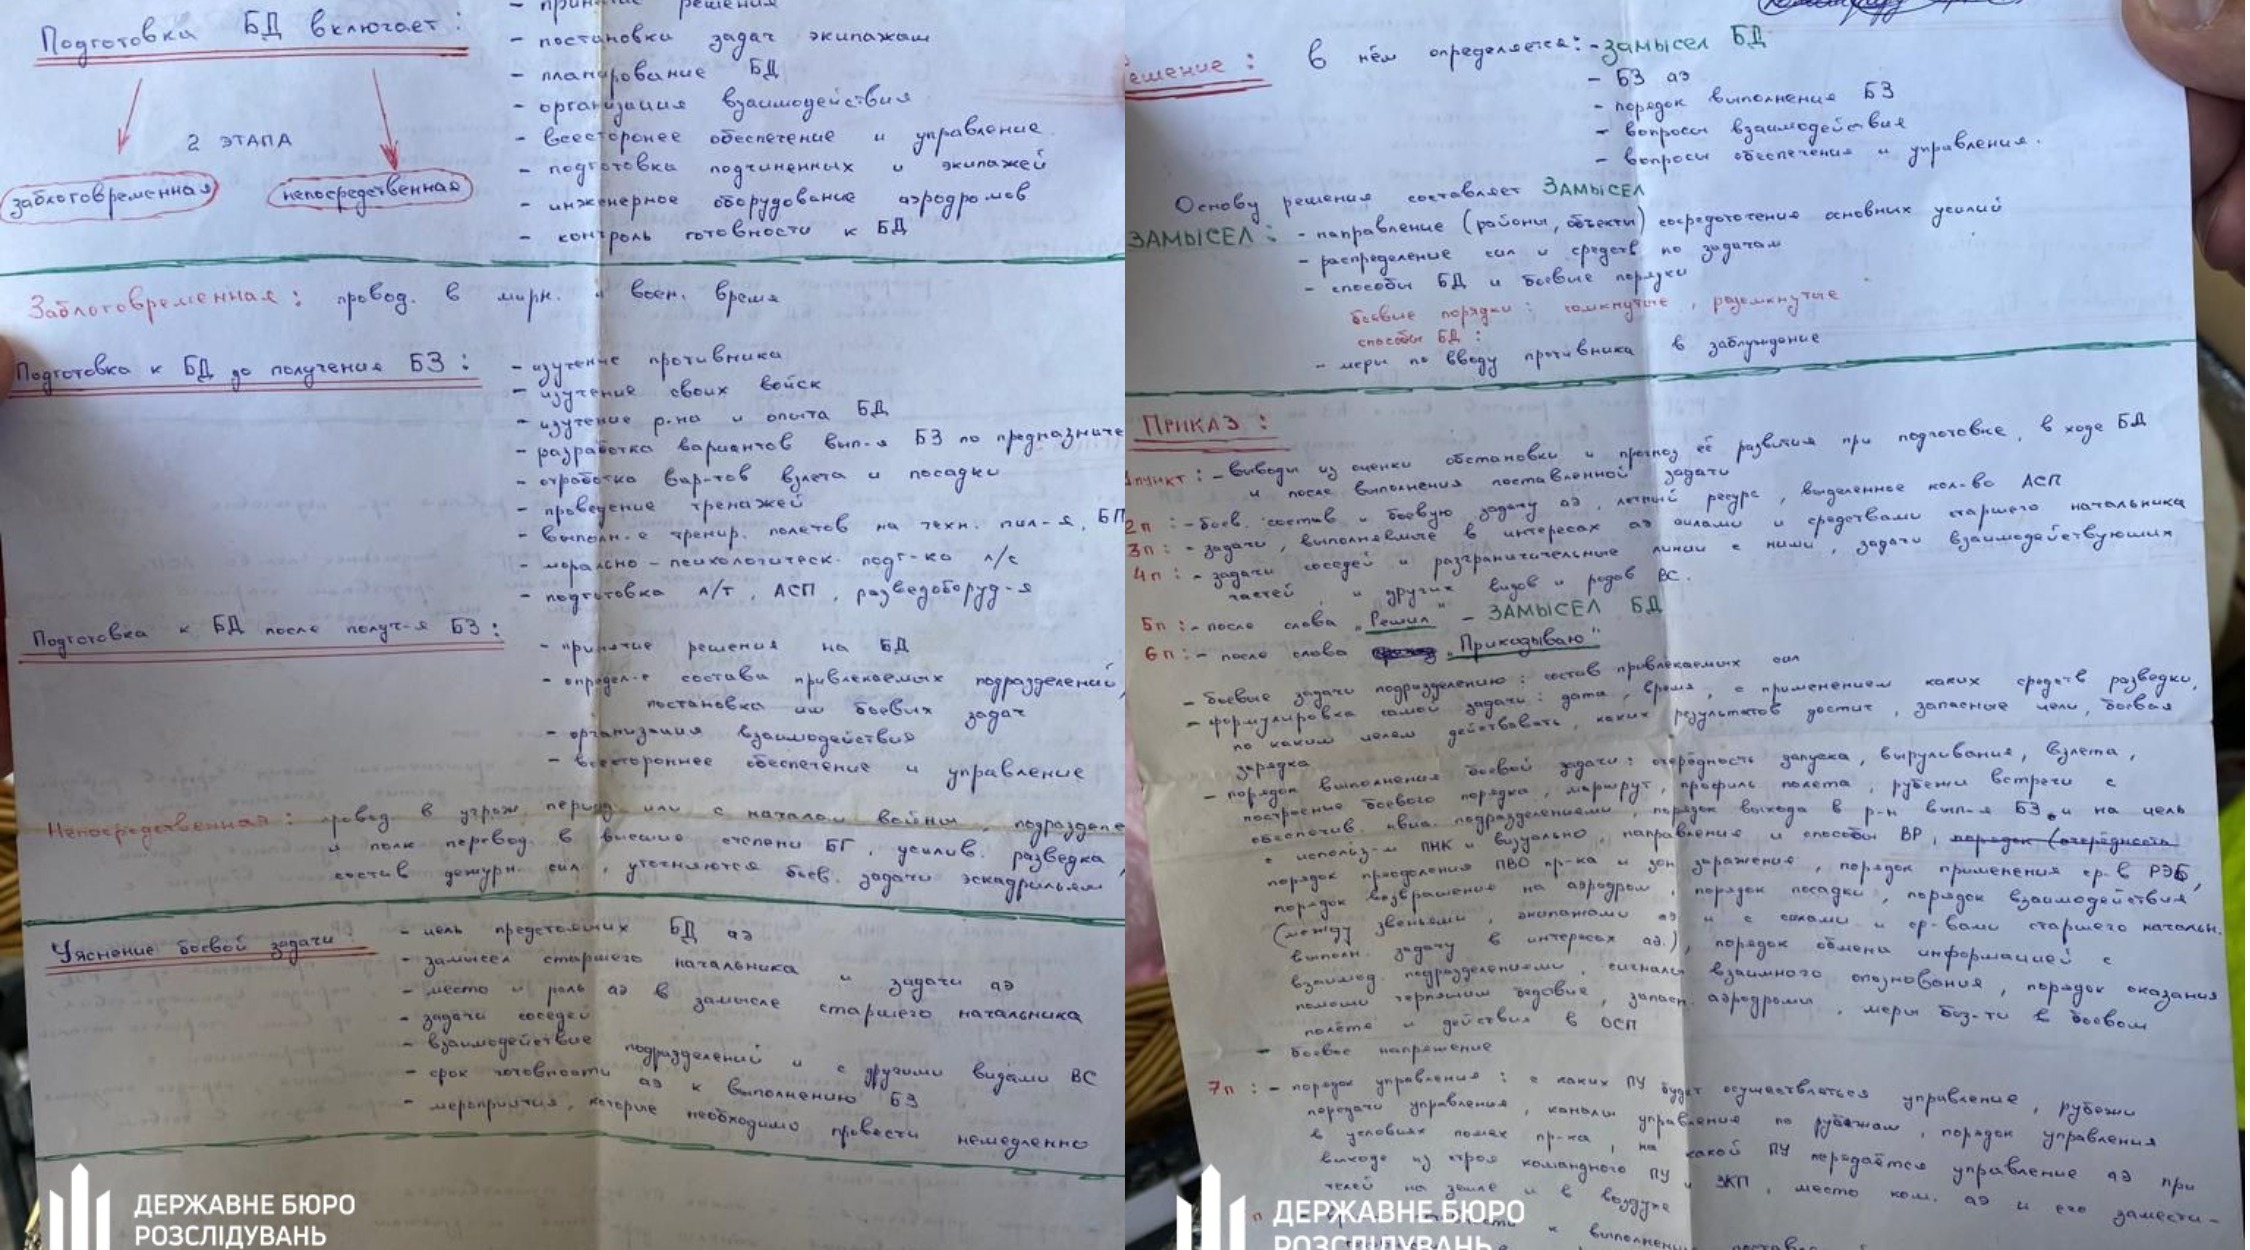 Подготовка БД включает:
- принятие решения
- постановка задач экипажам
- планирование БД
- организация взаимодействия
2 ЭТАПА
- всесторонее обеспечение и управление
- подготовка подчиненных и экипажей
заблоговременная
непосредственная
- инженерное оборудование аэродромов
- контроль готовности к БД
Заблоговременная: провод. в мирн. и воен. время
Подготовка к БД до получения БЗ:
- изучение противника
- изучение своих войск
- изучение р-на и опыта БД
- разработка вариантов вып-я БЗ по предназначе
- отработка вар-тов взлета и посадки
- проведение тренажей
- выполн-е тренир. полетов на техн. пил-я, БП
- морально-психологическ. подг-ка л/с
- подготовка А/Т, АСП, разведоборуд-я
Подготовка к БД после получ-я БЗ:
- принятие решения на БД
- определ-е состава привлекаемых подразделений,
постановка им боевых задач
- организация взаимодействия
- всестороннее обеспечение и управление
Непосредственная: провод. в угрож. период или с началом войны, подразделе
и полк перевод. в высшие степени БГ, усилив. разведка,
состав дежурн. сил, уточняются боев. задачи эскадрильям
Уяснение боевой задачи:
- цель предстоящих БД аэ
- замысел старшего начальника и задачи аэ
- место и роль аэ в замысле старшего начальника
- задачи соседей
- взаимодействие подразделений и с другими видами ВС
- срок готовности аэ к выполнению БЗ
- мероприятия, которые необходимо провести немедленно
ДЕРЖАВНЕ БЮРО
РОЗСЛІДУВАНЬ
ешение: в нём определяется: - замысел БД
- БЗ аэ
- порядок выполнения БЗ
- вопросы взаимодействия
- вопросы обеспечения и управления.
Основу решения составляет ЗАМЫСЕЛ
ЗАМЫСЕЛ: - направление (районы, объекты) сосредоточения основных усилий
- распределение сил и средств по задачам
- способы БД и боевые порядки
боевые порядки: сомкнутые, разомкнутые
способы БД:
- меры по вводу противника в заблуждение
ПРИКАЗ:
1пункт: - выводы из оценки обстановки и прогноз её развития при подготовке, в ходе БД
и после выполнения поставленной задачи
2п: - боев. состав и боевую задачу аэ, летный ресурс, выделенное кол-во АСП
3п: - задачи, выполняемые в интересах аэ силами и средствами старшего начальника
4п: - задачи соседей и разграничительные линии с ними, задачи взаимодействующих
частей, и других видов и родов ВС.
5п: - после слова „Решил" - ЗАМЫСЕЛ БД
6п: - после слова „Приказываю"
- боевые задачи подразделению: состав привлекаемых сил
- формулировка самой задачи: дата, время, с применением каких средств разведки,
по каким целям действовать, каких результатов достич, запасные цели, боевая
зарядка
- порядок выполнения боевой задачи: очерёдность запуска, выруливания, взлета,
построение боевого порядка, маршрут, профиль полета, рубежи встречи с
обеспечив. авиа. подразделениями, порядок выхода в р-н вып-я БЗ и на цель
с использ-м ПНК и визуально, направления и способы ВР, порядок (очерёдность
порядок преодоления ПВО пр-ка и зон заражения, порядок применения ср-в РЭБ,
порядок возвращения на аэродром, порядок посадки, порядок взаимодействия
(между звеньями, экипажами аэ и с силами и ср-вами старшего начальн.
выполн. задачу в интересах аэ.), порядок обмена информацией с
взаимод. подразделениями, сигналы взаимного опознования, порядок оказания
помощи терпящим бедствие, запасн. аэродромы, меры без-ти в боевом
полете и действия в ОСП
- боевое напряжение
7п: - порядок управления: с каких ПУ будет осуществляться управление, рубежи
передачи управления, каналы управления по рубежам, порядок управления
в условиях помех пр-ка, на какой ПУ передаётся управление аэ при
выходе из строя командного ПУ и ЗКП, место ком. аэ и его замести-
телей на земле и в воздухе
к выполнени
ДЕРЖАВНЕ БЮРО
РОЗСЛІДУВАНЬ